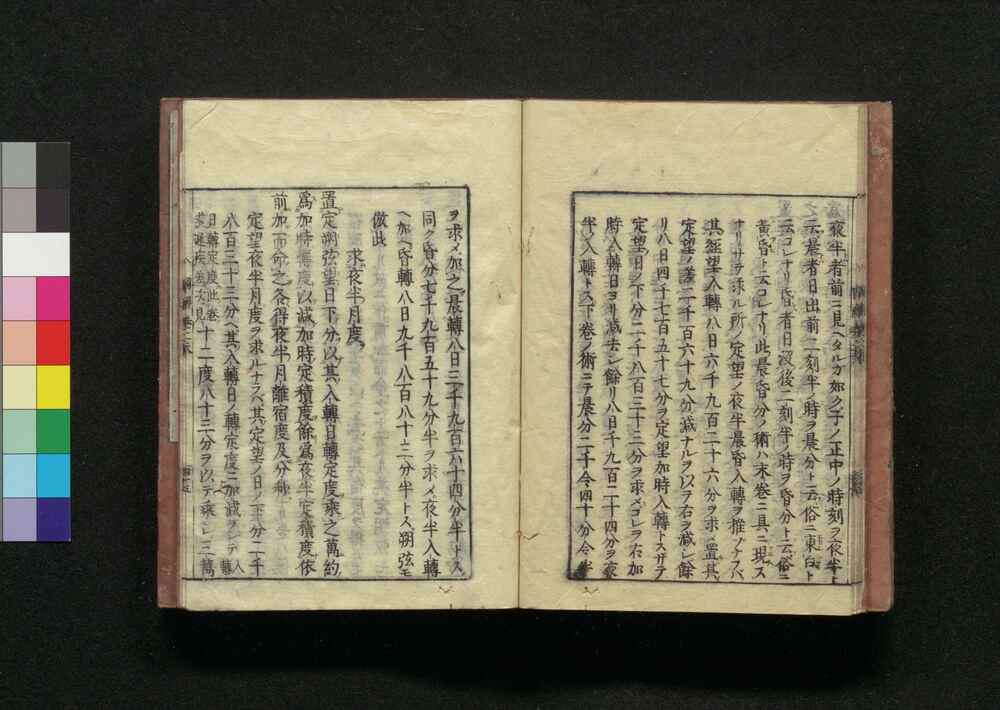 夜半者前ニ見ヘタルガ如ク子ノ正中ノ時刻ヲ夜半ト
云晨者日出前二刻半ノ時ヲ晨分ト云俗ニ東白ト
云コレナリ昏者日没後二刻半ノ時ヲ昏分ト云俗ニ
黄昏ト云コレナリ此晨昏分ノ術ハ末巻ニ具ニ現ス
ナリサテ求ル所ノ定望ノ夜半晨昏入轉ヲ推ノ
其經望入轉八日六千九百二十六分ヲ求メ置其
定望ノ差二千百六十九分減ナルヲ以ヲ右ヲ減シ餘
リ八日四千七百五十七分ヲ定望加時入轉トスサテ
定望ノ日ノ下分二千八百三十三分ヲ求メコレヲ右加
時入轉日ヨリ減去シ餘リ八日千九百二十四分ヲ夜
半ノ入轉トス下巻ノ術ニテ晨分二千令四十分令半
ヲ求メ加之晨轉八日三千九百六十四分半トス
同ク昏分七千九百五十九分半ヲ求メ夜半入轉
ヘ加ヘ昏轉八日九千八百八十三分半トス朔弦モ
倣此
求夜半月度
置定朔弦望日下分以其入轉日轉定度乘之萬約
爲加時轉度以減加時定積度餘爲夜半定積度依
前加而命之各得夜半月離宿度及分秒
定望夜半月度ヲ求ルナラバ其定望ノ日ノ下分二千
八百三十三分ヘ其入轉日ノ轉定度ニ加減ヲシテ
日轉定度此巻
遲疾差次見
十二度八十三分ヲ以テ乘シ三萬